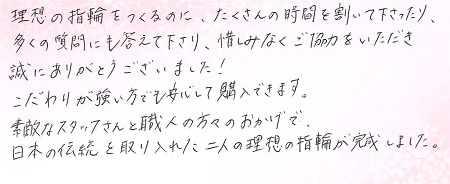 理想の指輪をつくるのに、たくさんの時間を割いて下さったり、
多くの質問にも答えて下さり、惜しみなくご協力をいただき
誠にありがとうございました!
こだわりが強い方でも安心して購入できます。
素敵なスタッフさんと職人の方々のおかげで、
日本の伝統を取り入れた二人の理想の指輪が完成しました。